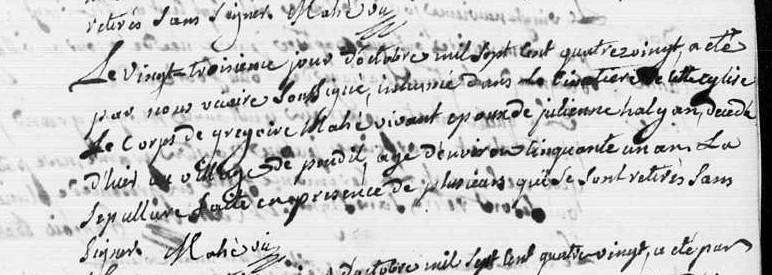 retirés sans signer. Mahé vic
Le vingt-troisieme jour d'octobre mil sept cent quatrevingt, a eté
par nous vicaire soussigné, inhumé dans le cimetiere de cette eglise
Le Corps de gregoire Mahé vivant epoux de julienne halgan, decedé
d'hier au village de pendil, agé d'environ cinquante un ans La
sepulture faite en presence de plusieurs qui se sont retirés sans
signer. Mahé vic
d'octobre mil sept cent quatrevingt, a eté par